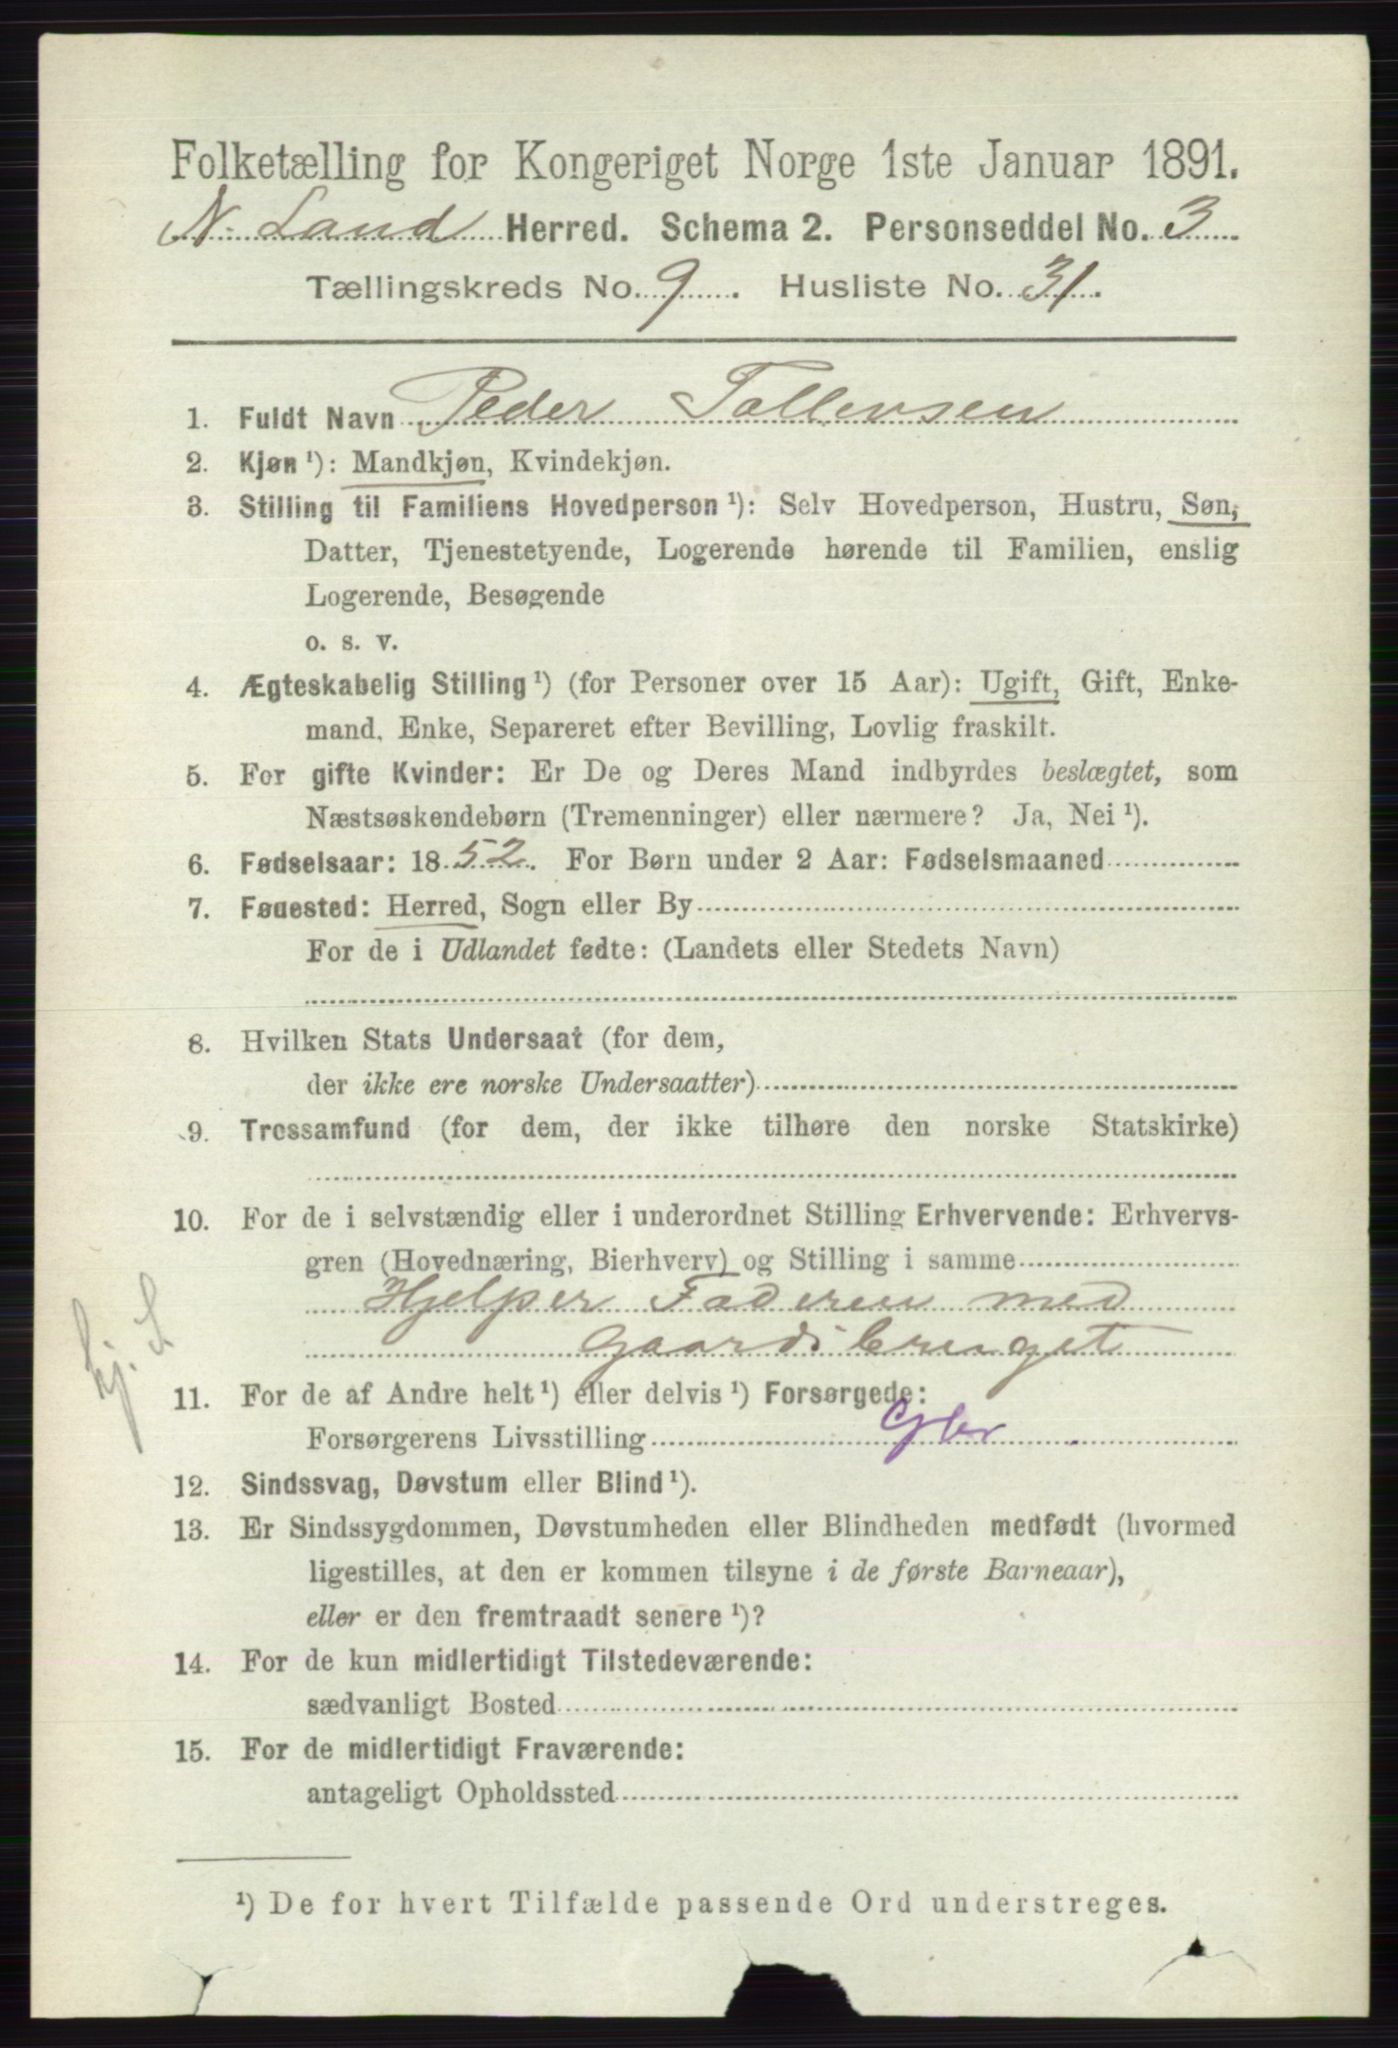 Folketælling for Kongeriget Norge 1ste Januar 1891.
N. Land Herred. Schema 2. Personseddel No. 3
Tællingskreds No. 9. Husliste No. 31.
1. Fuldt Navn Peder Tollensen
2. Kjøn ¹): Mandkjøn, Kvindekjøn.
3. Stilling til Familiens Hovedperson ¹): Selv Hovedperson, Hustru, Søn,
Datter, Tjenestetyende, Logerende hørende til Familien, enslig
Logerende, Besøgende
o. s. v.
4. Ægteskabelig Stilling ¹) (for Personer over 15 Aar): Ugift, Gift, Enke-
mand, Enke, Separeret efter Bevilling, Lovlig fraskilt.
5. For gifte Kvinder: Er De og Deres Mand indbyrdes beslægtet, som
Næstsøskendebørn (Tremenninger) eller nærmere? Ja, Nei ¹).
6. Fødselsaar: 1852. For Børn under 2 Aar: Fødselsmaaned
7. Fødested: Herred, Sogn eller By
For de i Udlandet fødte: (Landets eller Stedets Navn)
8. Hvilken Stats Undersaat (for dem,
der ikke ere norske Undersaatter)
9. Trossamfund (for dem, der ikke tilhøre den norske Statskirke)
10. For de i selvstændig eller i underordnet Stilling Erhvervende: Erhvervs-
gren (Hovednæring, Bierhverv) og Stilling i samme
Hjelper Faderen med
gaardsbruget
hj. S
11. For de af Andre helt ¹) eller delvis ¹) Forsørgede:
Forsørgerens Livsstilling Gbr
12. Sindssvag, Døvstum eller Blind ¹).
13. Er Sindssygdommen, Døvstumheden eller Blindheden medfødt (hvormed
ligestilles, at den er kommen tilsyne i de første Barneaar),
eller er den fremtraadt senere ¹)?
14. For de kun midlertidigt Tilstedeværende:
sædvanligt Bosted
15. For de midlertidigt Fraværende:
antageligt Opholdssted
¹) De for hvert Tilfælde passende Ord understreges.